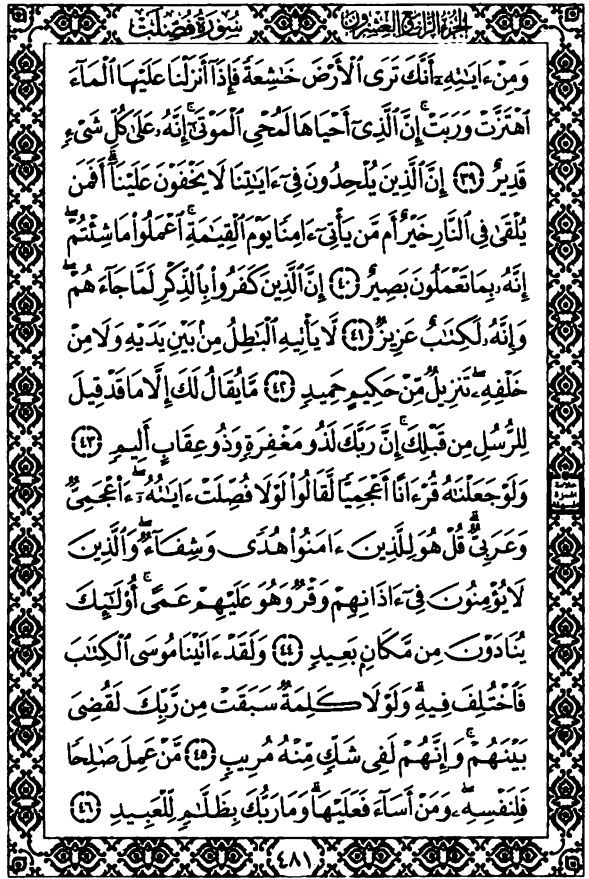 الجُزْءُ الرَّابِعُ وَالعِشْرُونَ سُورَةُ فُصِّلَتْ
وَمِنْ ءَايَٰتِهِۦٓ أَنَّكَ تَرَى ٱلْأَرْضَ خَٰشِعَةً فَإِذَآ أَنزَلْنَا عَلَيْهَا ٱلْمَآءَ
ٱهْتَزَّتْ وَرَبَتْ ۚ إِنَّ ٱلَّذِىٓ أَحْيَاهَا لَمُحْىِ ٱلْمَوْتَىٰٓ ۚ إِنَّهُۥ عَلَىٰ كُلِّ شَىْءٍ
قَدِيرٌ ﴿٣٩﴾ إِنَّ ٱلَّذِينَ يُلْحِدُونَ فِىٓ ءَايَٰتِنَا لَا يَخْفَوْنَ عَلَيْنَآ ۗ أَفَمَن
يُلْقَىٰ فِى ٱلنَّارِ خَيْرٌ أَم مَّن يَأْتِىٓ ءَامِنًا يَوْمَ ٱلْقِيَٰمَةِ ۚ ٱعْمَلُوا۟ مَا شِئْتُمْ ۖ
إِنَّهُۥ بِمَا تَعْمَلُونَ بَصِيرٌ ﴿٤٠﴾ إِنَّ ٱلَّذِينَ كَفَرُوا۟ بِٱلذِّكْرِ لَمَّا جَآءَهُمْ ۖ
وَإِنَّهُۥ لَكِتَٰبٌ عَزِيزٌ ﴿٤١﴾ لَّا يَأْتِيهِ ٱلْبَٰطِلُ مِنۢ بَيْنِ يَدَيْهِ وَلَا مِنْ
خَلْفِهِۦ ۖ تَنزِيلٌ مِّنْ حَكِيمٍ حَمِيدٍ ﴿٤٢﴾ مَّا يُقَالُ لَكَ إِلَّا مَا قَدْ قِيلَ
لِلرُّسُلِ مِن قَبْلِكَ ۚ إِنَّ رَبَّكَ لَذُو مَغْفِرَةٍ وَذُو عِقَابٍ أَلِيمٍ ﴿٤٣﴾
وَلَوْ جَعَلْنَٰهُ قُرْءَانًا أَعْجَمِيًّا لَّقَالُوا۟ لَوْلَا فُصِّلَتْ ءَايَٰتُهُۥٓ ۖ ءَا۬عْجَمِىٌّ
وَعَرَبِىٌّ ۗ قُلْ هُوَ لِلَّذِينَ ءَامَنُوا۟ هُدًى وَشِفَآءٌ ۖ وَٱلَّذِينَ
لَا يُؤْمِنُونَ فِىٓ ءَاذَانِهِمْ وَقْرٌ وَهُوَ عَلَيْهِمْ عَمًى ۚ أُو۟لَٰٓئِكَ
يُنَادَوْنَ مِن مَّكَانٍۭ بَعِيدٍ ﴿٤٤﴾ وَلَقَدْ ءَاتَيْنَا مُوسَى ٱلْكِتَٰبَ
فَٱخْتُلِفَ فِيهِ ۗ وَلَوْلَا كَلِمَةٌ سَبَقَتْ مِن رَّبِّكَ لَقُضِىَ
بَيْنَهُمْ ۚ وَإِنَّهُمْ لَفِى شَكٍّ مِّنْهُ مُرِيبٍ ﴿٤٥﴾ مَّنْ عَمِلَ صَٰلِحًا
فَلِنَفْسِهِۦ ۖ وَمَنْ أَسَآءَ فَعَلَيْهَا ۗ وَمَا رَبُّكَ بِظَلَّٰمٍ لِّلْعَبِيدِ ﴿٤٦﴾
٤٨١